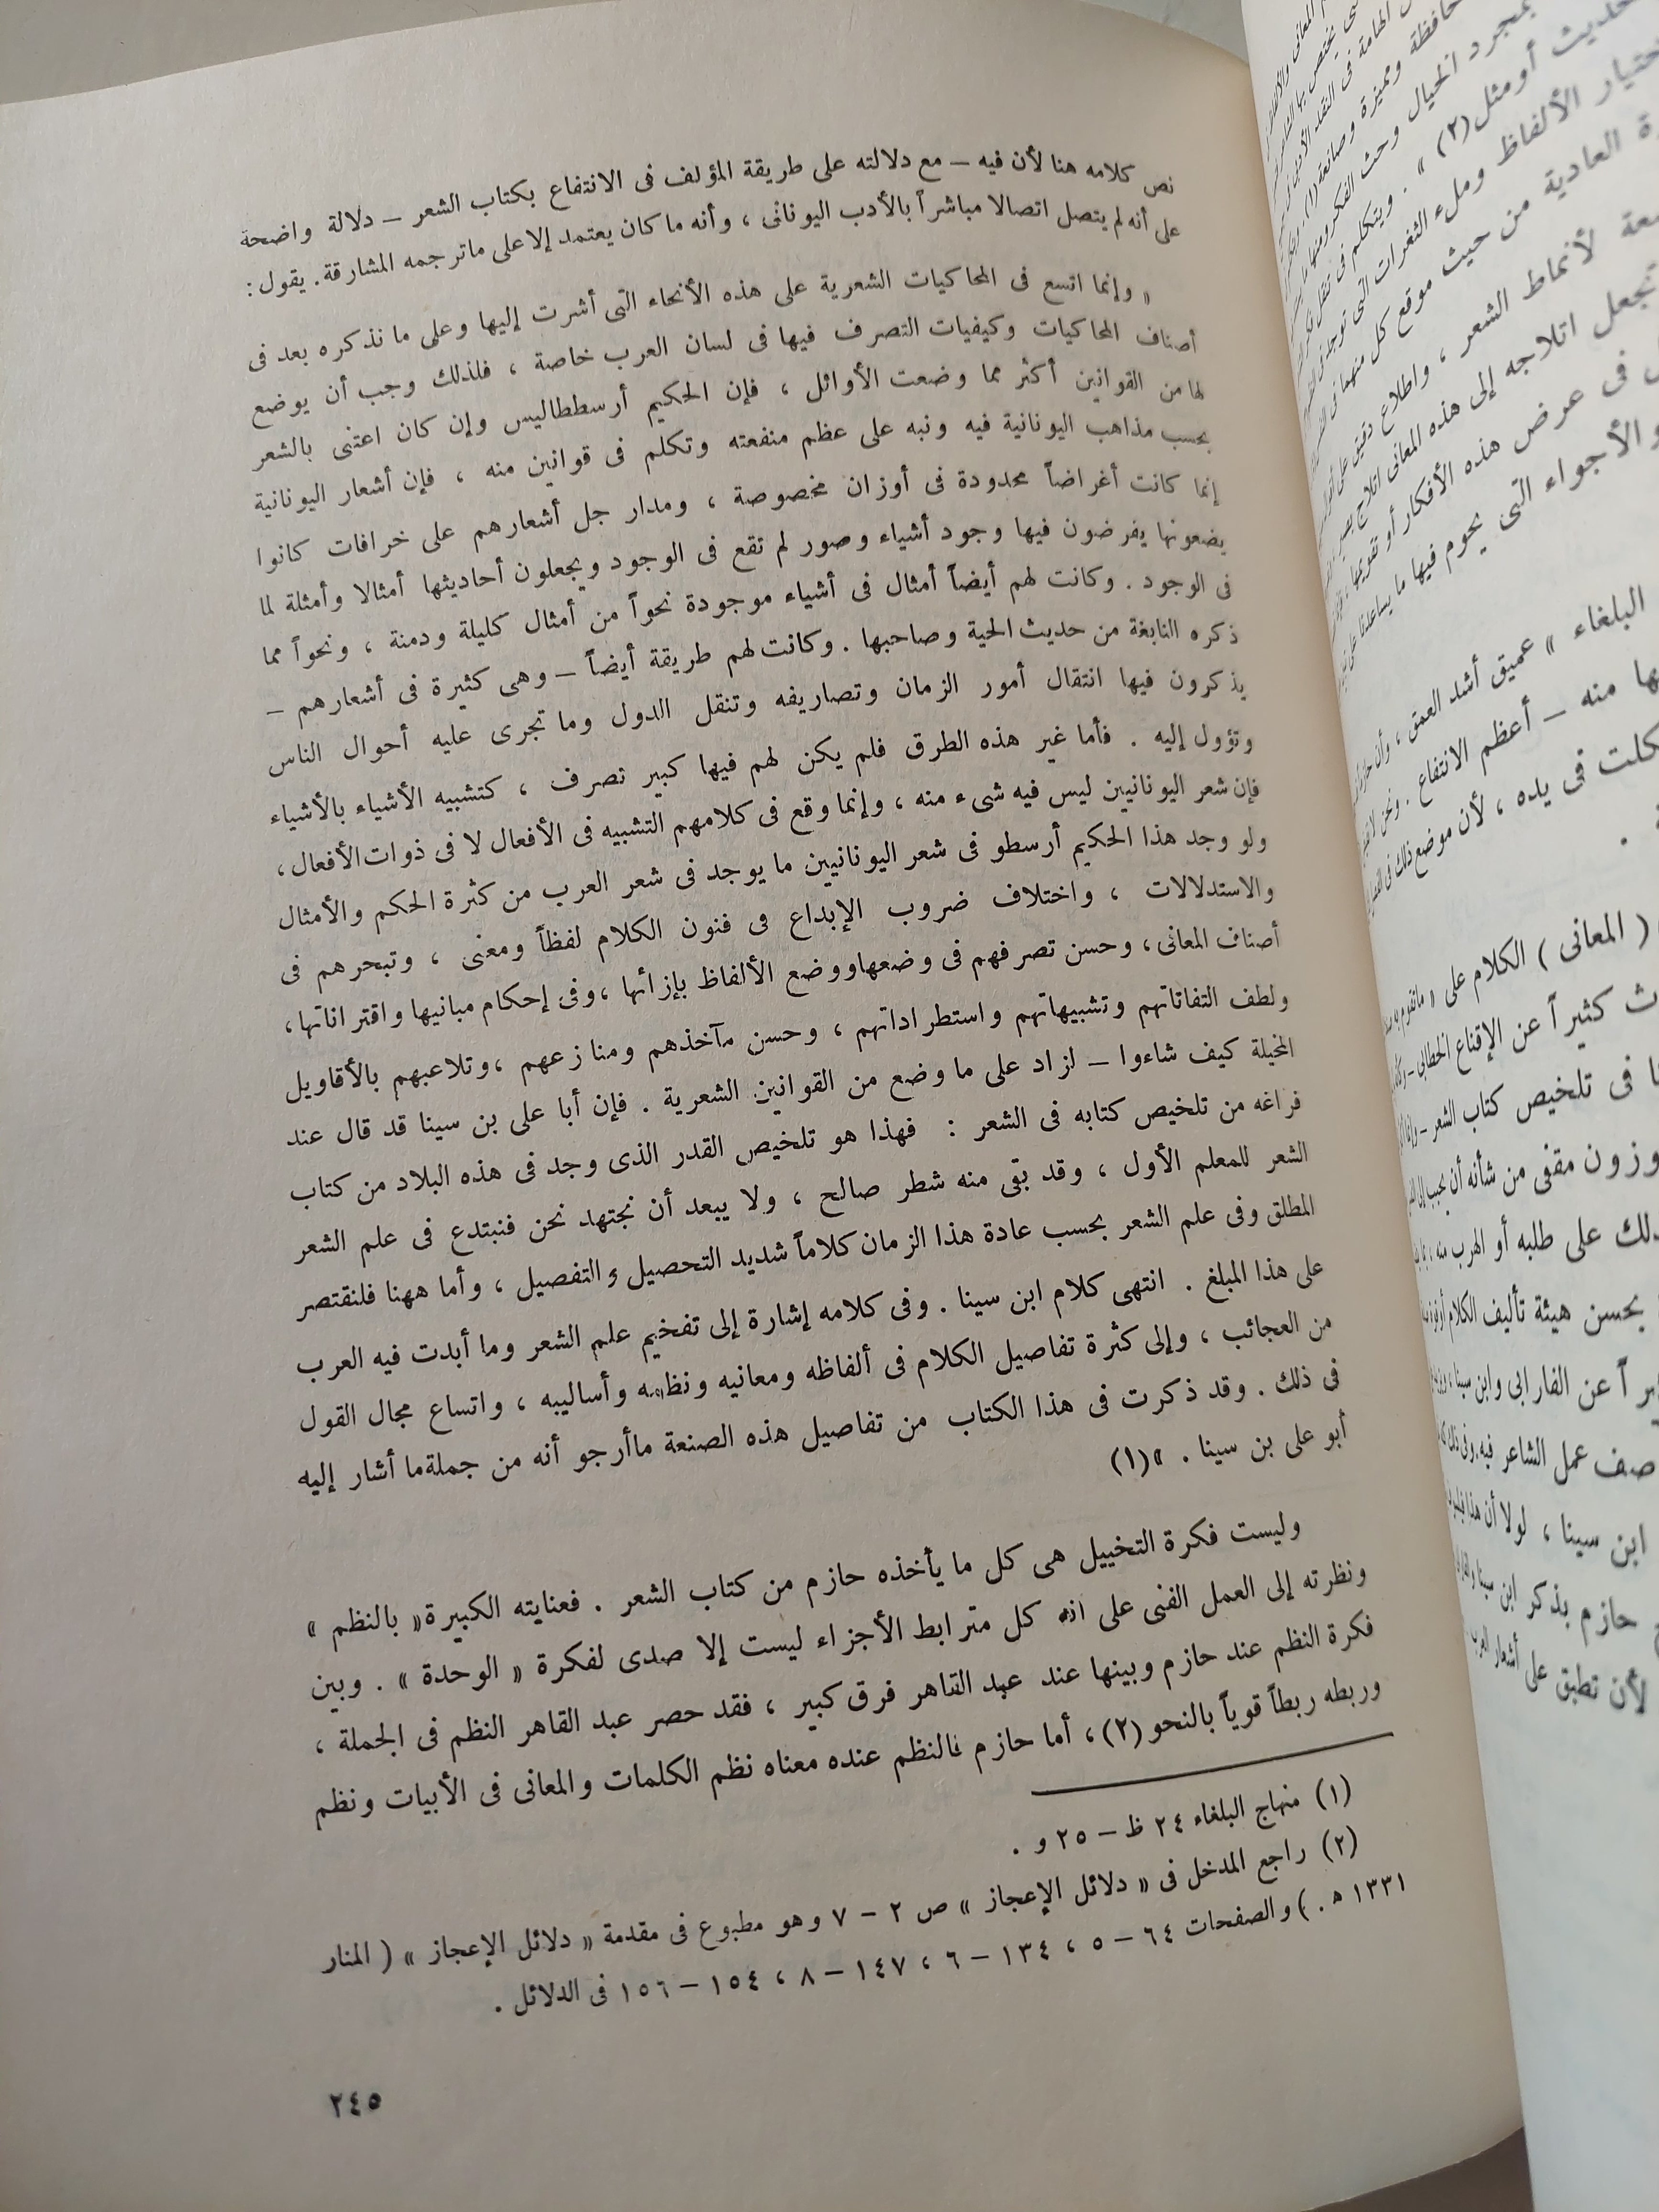 نص كلامه هنا لأن فيه – مع دلالته على طريقة المؤلف فى الانتفاع بكتاب الشعر – دلالة واضحة
على أنه لم يتصل اتصالا مباشراً بالأدب اليونانى ، وأنه ما كان يعتمد إلا على ماترجمه المشارقة. يقول :
« وإنما اتسع فى المحاكيات الشعرية على هذه الأنحاء التى أشرت إليها وعلى ما نذكره بعد فى
أصناف المحاكيات وكيفيات التصرف فيها فى لسان العرب خاصة ، فلذلك وجب أن يوضع
لها من القوانين أكثر مما وضعت الأوائل ، فإن الحكيم أرسططاليس وإن كان اعتنى بالشعر
بحسب مذاهب اليونانية فيه ونبه على عظم منفعته وتكلم فى قوانين منه ، فإن أشعار اليونانية
إنما كانت أغراضاً محدودة فى أوزان مخصوصة ، ومدار جل أشعارهم على خرافات كانوا
يضعونها يفرضون فيها وجود أشياء وصور لم تقع فى الوجود ويجعلون أحاديثها أمثالا وأمثلة لما
فى الوجود . وكانت لهم أيضاً أمثال فى أشياء موجودة نحواً من أمثال كليلة ودمنة ، ونحواً مما
ذكره النابغة من حديث الحية وصاحبها . وكانت لهم طريقة أيضاً – وهى كثيرة فى أشعارهم –
يذكرون فيها انتقال أمور الزمان وتصاريفه وتنقل الدول وما تجرى عليه أحوال الناس
وتؤول إليه . فأما غير هذه الطرق فلم يكن لهم فيها كبير تصرف ، كتشبيه الأشياء بالأشياء
فإن شعر اليونانيين ليس فيه شىء منه ، وإنما وقع فى كلامهم التشبيه فى الأفعال لا فى ذوات الأفعال ،
ولو وجد هذا الحكيم أرسطو فى شعر اليونانيين ما يوجد فى شعر العرب من كثرة الحكم والأمثال
والاستدلالات ، واختلاف ضروب الإبداع فى فنون الكلام لفظاً ومعنى ، وتبحرهم فى
أصناف المعانى ، وحسن تصرفهم فى وضعها ووضع الألفاظ بإزائها ، وفى إحكام مبانيها واقتراناتها ،
ولطف التفاتاتهم وتشبيهاتهم واستطراداتهم ، وحسن مآخذهم ومنازعهم ، وتلاعبهم بالأقاويل
المخيلة كيف شاءوا – لزاد على ما وضع من القوانين الشعرية . فإن أبا على بن سينا قد قال عند
فراغه من تلخيص كتابه فى الشعر : فهذا هو تلخيص القدر الذى وجد فى هذه البلاد من كتاب
الشعر للمعلم الأول ، وقد بقى منه شطر صالح ، ولا يبعد أن نجتهد نحن فنبتدع فى علم الشعر
المطلق وفى علم الشعر بحسب عادة هذا الزمان كلاماً شديد التحصيل والتفصيل ، وأما ههنا فلنقتصر
على هذا المبلغ . انتهى كلام ابن سينا . وفى كلامه إشارة إلى تفخيم علم الشعر وما أبدت فيه العرب
من العجائب ، وإلى كثرة تفاصيل الكلام فى ألفاظه ومعانيه ونظمه وأساليبه ، واتساع مجال القول
فى ذلك . وقد ذكرت فى هذا الكتاب من تفاصيل هذه الصنعة ماأرجو أنه من جملة ما أشار إليه
أبو على بن سينا . »(١)
وليست فكرة التخييل هى كل ما يأخذه حازم من كتاب الشعر . فعنايته الكبيرة « بالنظم »
ونظرته إلى العمل الفنى على أنه كل مترابط الأجزاء ليست إلا صدى لفكرة « الوحدة » . وبين
فكرة النظم عند حازم وبينها عند عبد القاهر فرق كبير ، فقد حصر عبد القاهر النظم فى الجملة ،
وربطه ربطاً قوياً بالنحو (٢) ، أما حازم فالنظم عنده معناه نظم الكلمات والمعانى فى الأبيات ونظم
(١) منهاج البلغاء ٢٤ ظ – ٢٥ و .
(٢) راجع المدخل فى « دلائل الإعجاز » ص ٢ – ٧ وهو مطبوع فى مقدمة « دلائل الإعجاز » ( المنار
١٣٣١ هـ . ) والصفحات ٦٤ – ٥ ، ١٣٤ – ٦ ، ١٤٧ – ٨ ، ١٥٤ – ١٥٦ فى الدلائل .
٢٤٥
بمجرد الخيال وحث
حديث أومثل (٢) » . ويتكلم فى
اختيار الألفاظ وملء الثغرات التى
العادية من حيث موقع كل منهما
لأنماط الشعر ، واطلاع دقيق على
تجعل اتلاجه إلى هذه المعانى
فى عرض هذه الأفكار أو تقويمها
والأجواء التى يحوم فيها ما يساعدنا على
البلغاء » عميق أشد العمق ، وأن
منه – أعظم الانتفاع . ونحن
فى يده ، لأن موضع ذلك فى
( المعانى ) الكلام على «
كثيراً عن الإقناع الخطابى –
فى تلخيص كتاب الشعر –
موزون مقفى من شأنه أن يحبب إلى
على طلبه أو الهرب منه ،
بحسن هيئة تأليف الكلام أو
عن الفارابى وابن سينا ،
عمل الشاعر فيه .
ابن سينا ، لولا أن هذا
حازم يذكر ابن سينا
لأن تطبق على أشعار العرب